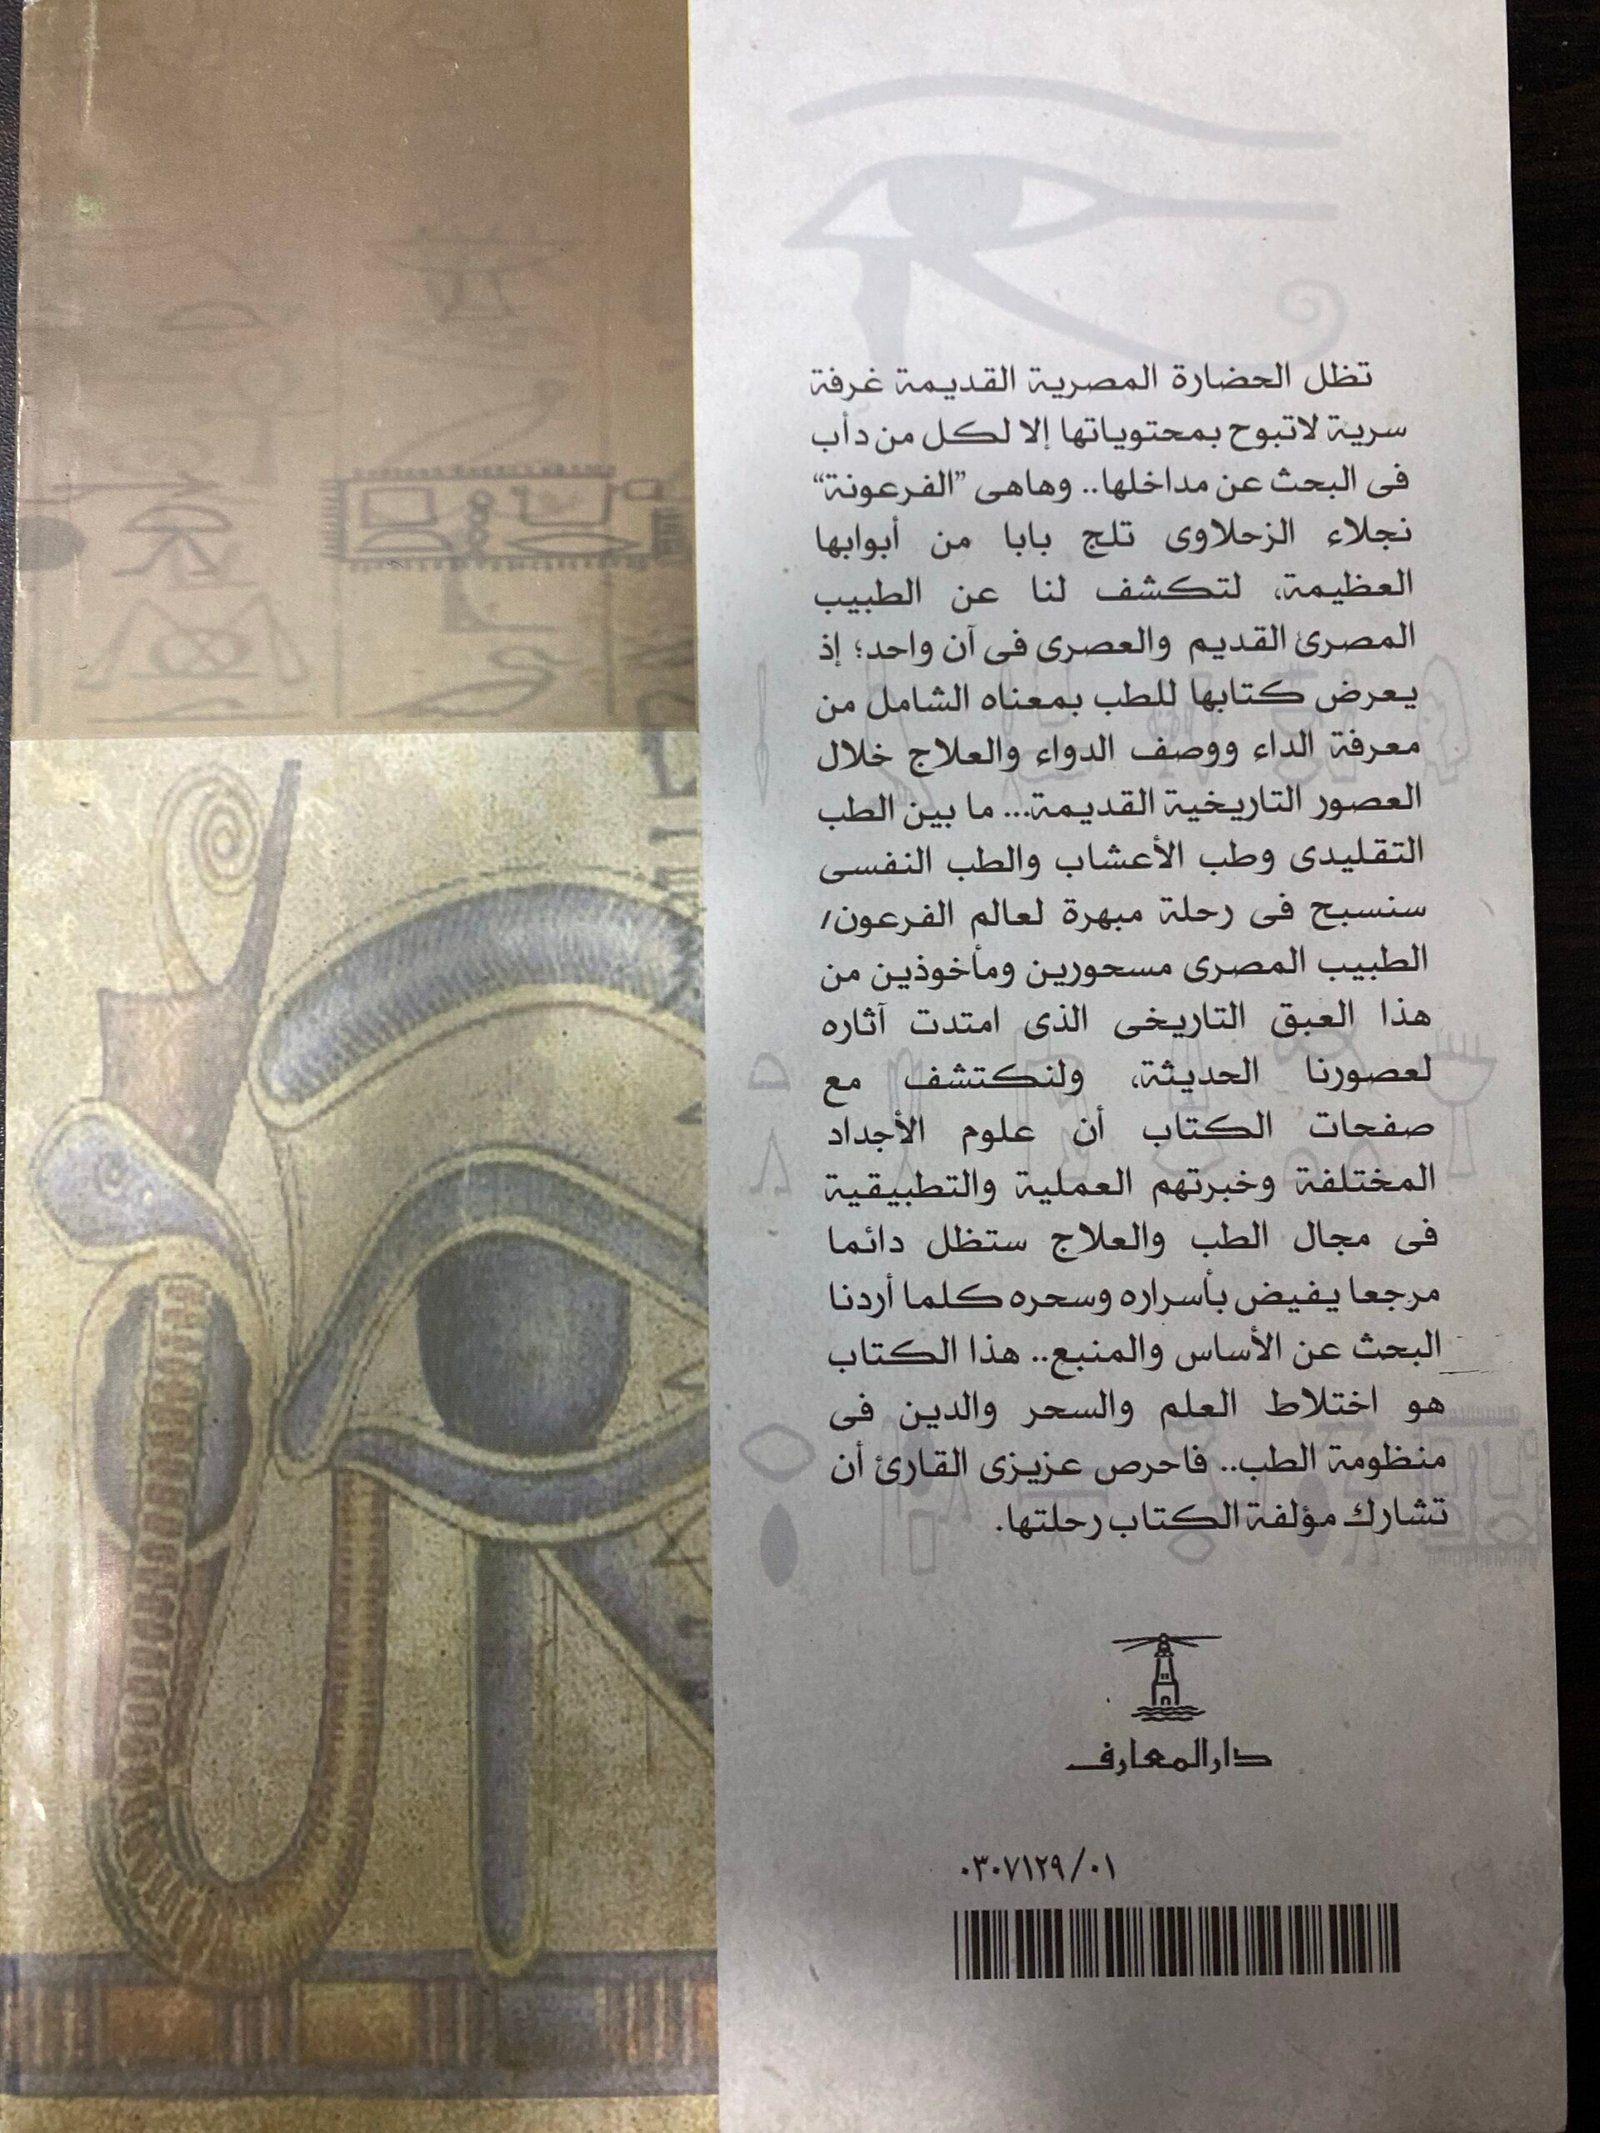 تظل الحضارة المصرية القديمة غرفة
سرية لاتبوح بمحتوياتها إلا لكل من دأب
فى البحث عن مداخلها.. وهاهى ”الفرعونة“
نجلاء الزحلاوى تلج بابا من أبوابها
العظيمة، لتكشف لنا عن الطبيب
المصرى القديم والعصرى فى آن واحد؛ إذ
يعرض كتابها للطب بمعناه الشامل من
معرفة الداء ووصف الدواء والعلاج خلال
العصور التاريخية القديمة... ما بين الطب
التقليدى وطب الأعشاب والطب النفسى
سنسبح فى رحلة مبهرة لعالم الفرعون/
الطبيب المصرى مسحورين ومأخوذين من
هذا العبق التاريخى الذى امتدت آثاره
لعصورنا الحديثة، ولنكتشف مع
صفحات الكتاب أن علوم الأجداد
المختلفة وخبرتهم العملية والتطبيقية
فى مجال الطب والعلاج ستظل دائما
مرجعا يفيض بأسراره وسحره كلما أردنا
البحث عن الأساس والمنبع.. هذا الكتاب
هو اختلاط العلم والسحر والدين فى
منظومة الطب.. فاحرص عزيزى القارئ أن
تشارك مؤلفة الكتاب رحلتها.
دارالمعارف
٠٣٠٧١٢٩/٠١